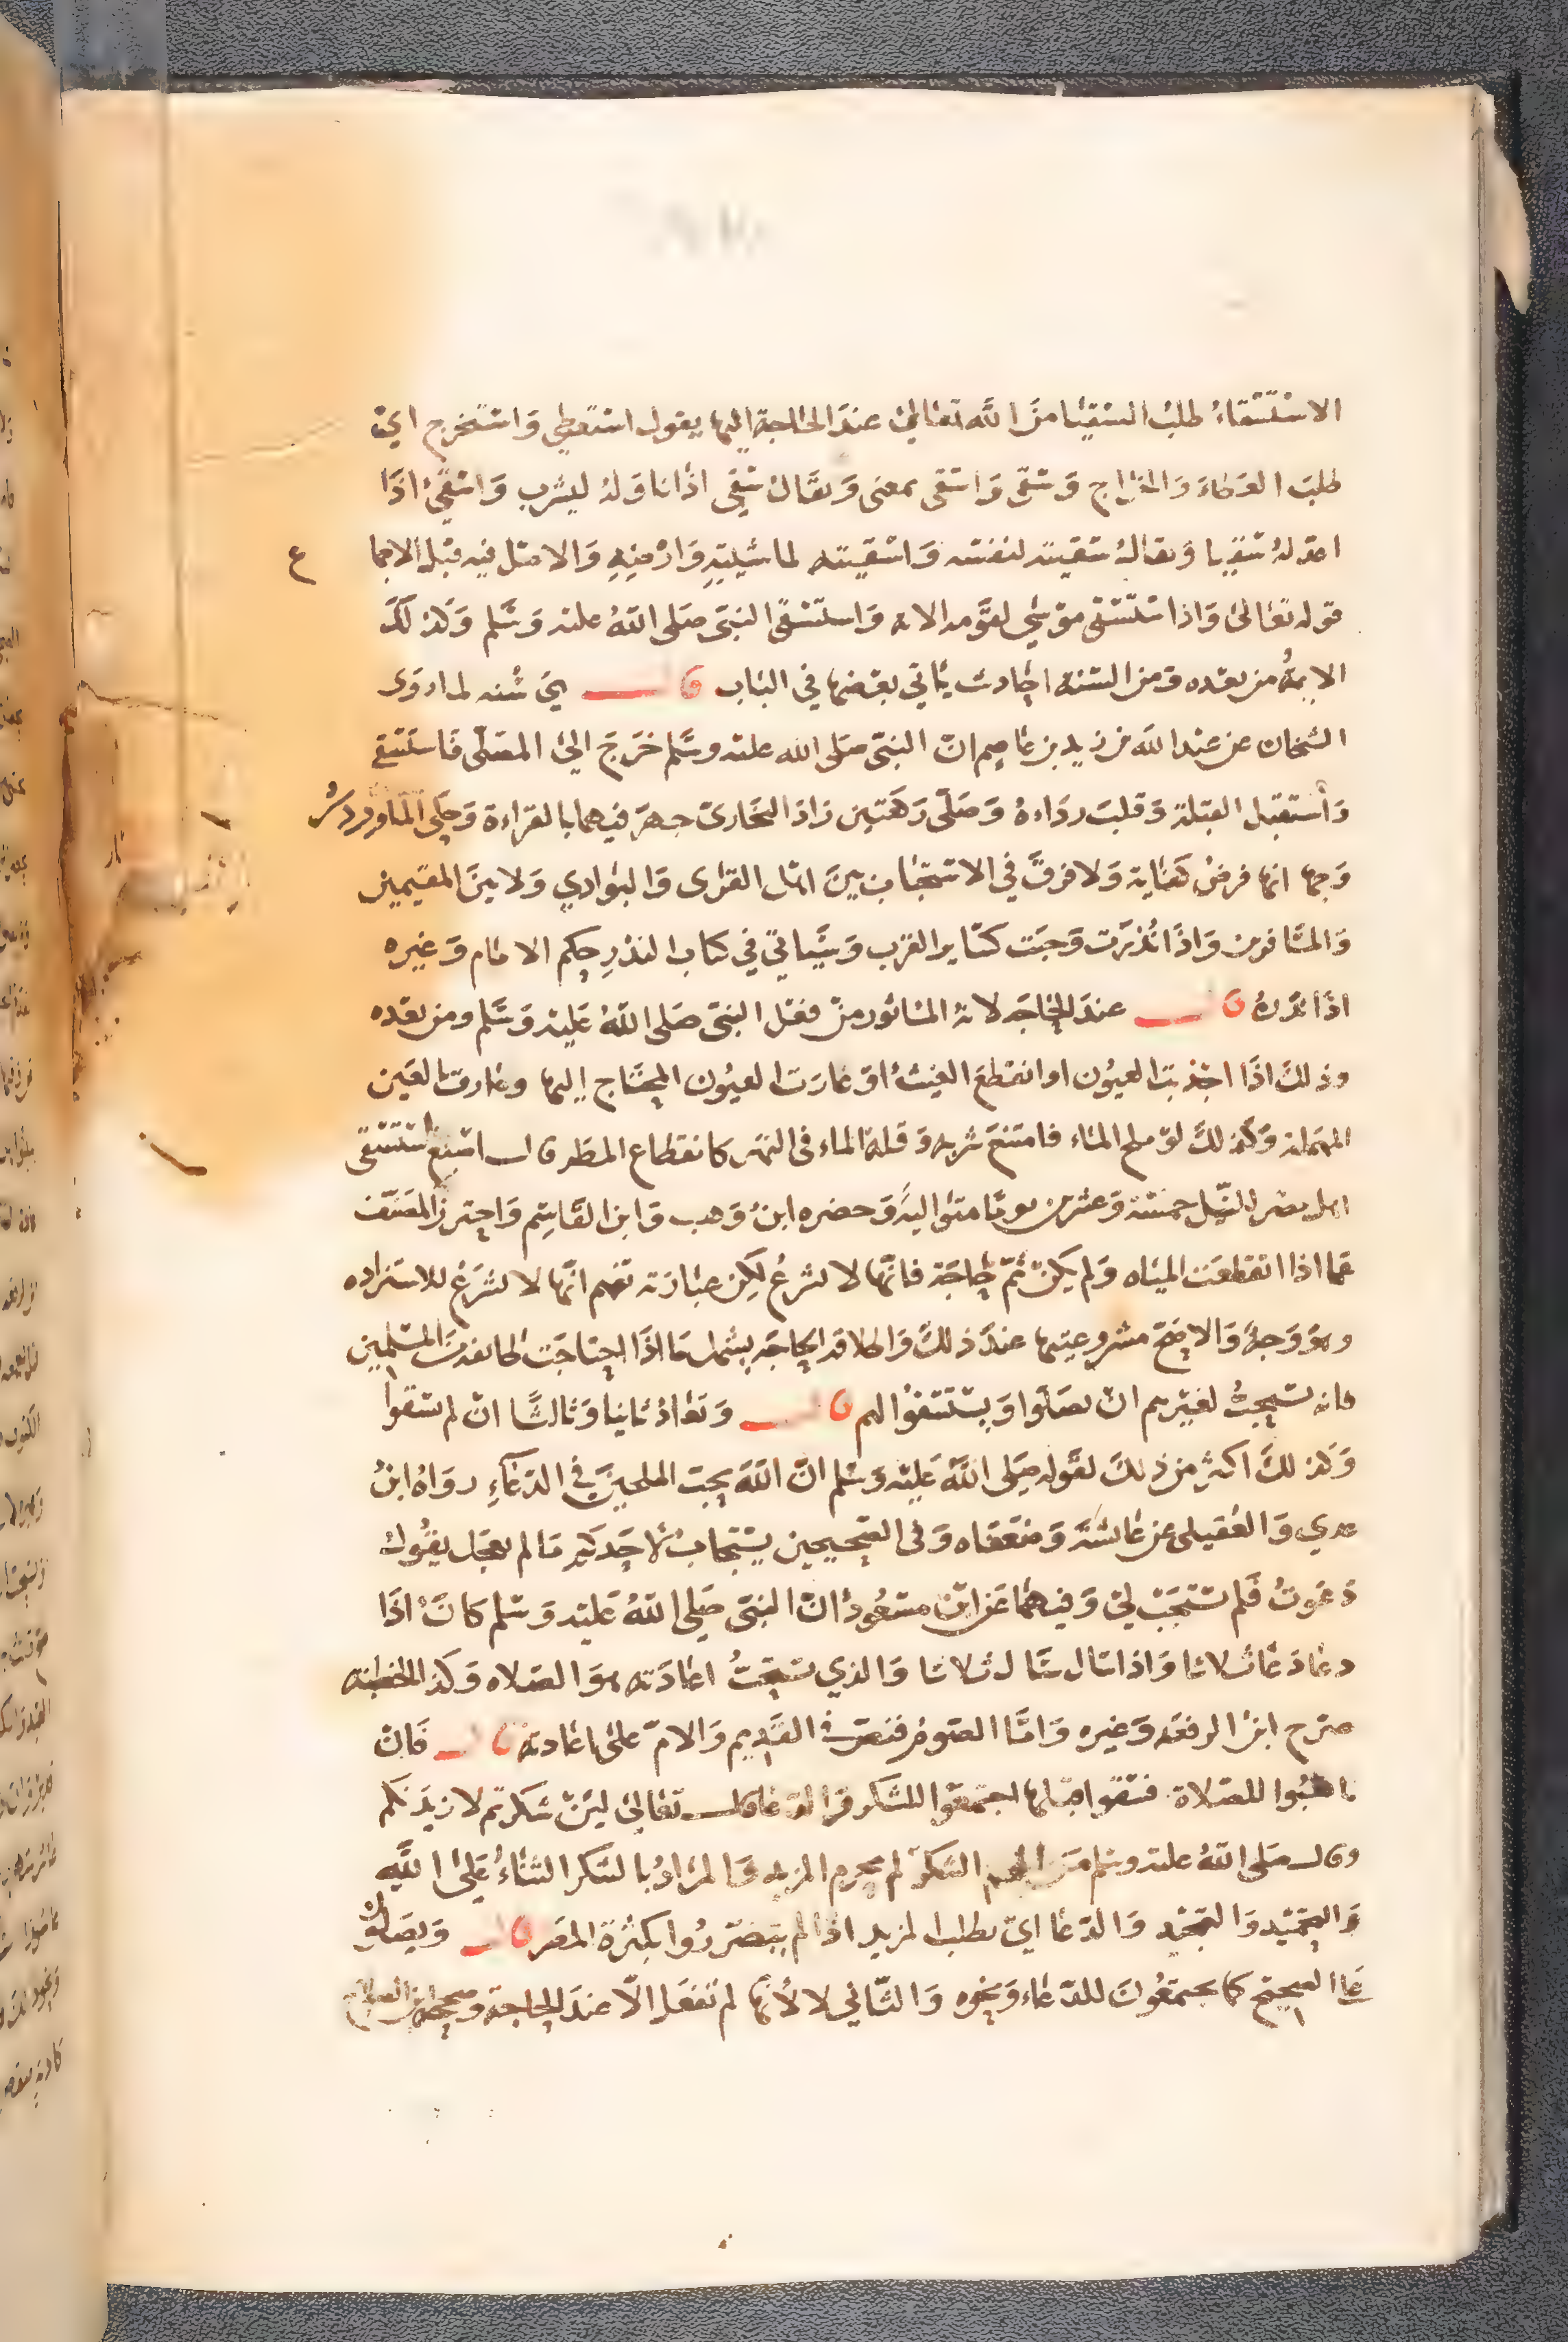 الاستسقاء طلب السقيا من الله تعالى عند الحاجة اليها يقول استعطي واستخرج اي
طلب العطاء والخراج وسقى واسقى بمعنى ويقال سقى اذا ناوله ليشرب واسقى اذا
اعد له سقيا ويقال سقيته لنفسه واسقيته لماشيته وارضه والاصل فيه قبل الاجما ع
قوله تعالى واذا ستسقى موسى لقومه الايه واستسقى النبي صلى الله عليه وسلم وكذلك
الايمة من بعده ومن السنة احاديث ياتي بعضها في الباب قال هي سنه لما روى
الشيخان عن عبد الله بن زيد بن عاصم ان النبي صلى الله عليه وسلم خرج الى المصلى فاستسقى
وأستقبل القبلة وقلب رداءه وصلى ركعتين زاد البخاري جهر فيهما بالقراءة وحكى الماوردي
وجها انها فرض كفاية ولا فرق في الاستحباب بين اهل القرى والبوادي ولا بين المقيمين
والمسافرين واذا نذرت وجبت كساير القرب وسياتي في كتاب النذر حكم الامام وغيره
اذا نذره قال عند الحاجه لانه الماثور من فعل النبي صلى الله عليه وسلم ومن بعده
وذلك اذا اجذبت العيون او انقطع الغيث او غارت العيون المحتاج اليها وغارت العين
المهمله وكذلك لو ملح الماء فامتنع شربه وقلة الماء في النهر كانقطاع المطر قال اصبغ استسقى
اهل مصر للنيل خمسة وعشرين يوما متواليه وحضره ابن وهب وابن القاسم واحترز المصنف
عما اذا انقطعت المياه ولم يكن ثم حاجة فانها لا تشرع لكن عبارته تفهم انها لا تشرع للاستزاده
وهو وجه والاصح مشروعيتها عند ذلك واطلاقه الحاجه يشمل ما اذا احتاجت طايفة من المسلمين
فانه تستحب لغيرهم ان يصلوا ويستسقوا لهم قال وتعاد ثانيا وثالثا ان لم تسقوا
وكذلك اكثر من ذلك لقوله صلى الله عليه وسلم ان الله يحب الملحين في الدعاء رواه ابن
عدي والعقيلي عن عائشة وضعفاه وفي الصحيحين يستجاب لأحدكم ما لم يعجل يقول
دعوت فلم تستجب لي وفيهما عن ابن مسعود ان النبي صلى الله عليه وسلم كان اذا
دعا دعا ثلاثا واذا سال سال ثلاثا والذي تستحب اعادته هو الصلاه وكذا الخطبه
صرح ابن الرفعه وغيره واما الصوم فنص في القديم والام على اعادته قال فان
تاهبوا للصلاة فسقوا قبلها اجتمعوا للشكر والدعا قال تعالى لئن شكرتم لازيدنكم
وقال صلى الله عليه وسلم من الهم الشكر لم يحرم المزيد والمراد بالشكر الثناء على الله
والتحميد والتمجيد والدعا اي بطلب المزيد اذا لم يتضرروا بكثرة المطر قال ويصلون
على الصحيح كما يجتمعون للدعاء ونحوه والثاني لا لأنها لم تفعل الا عند الحاجة وصححه ابن الصلاح